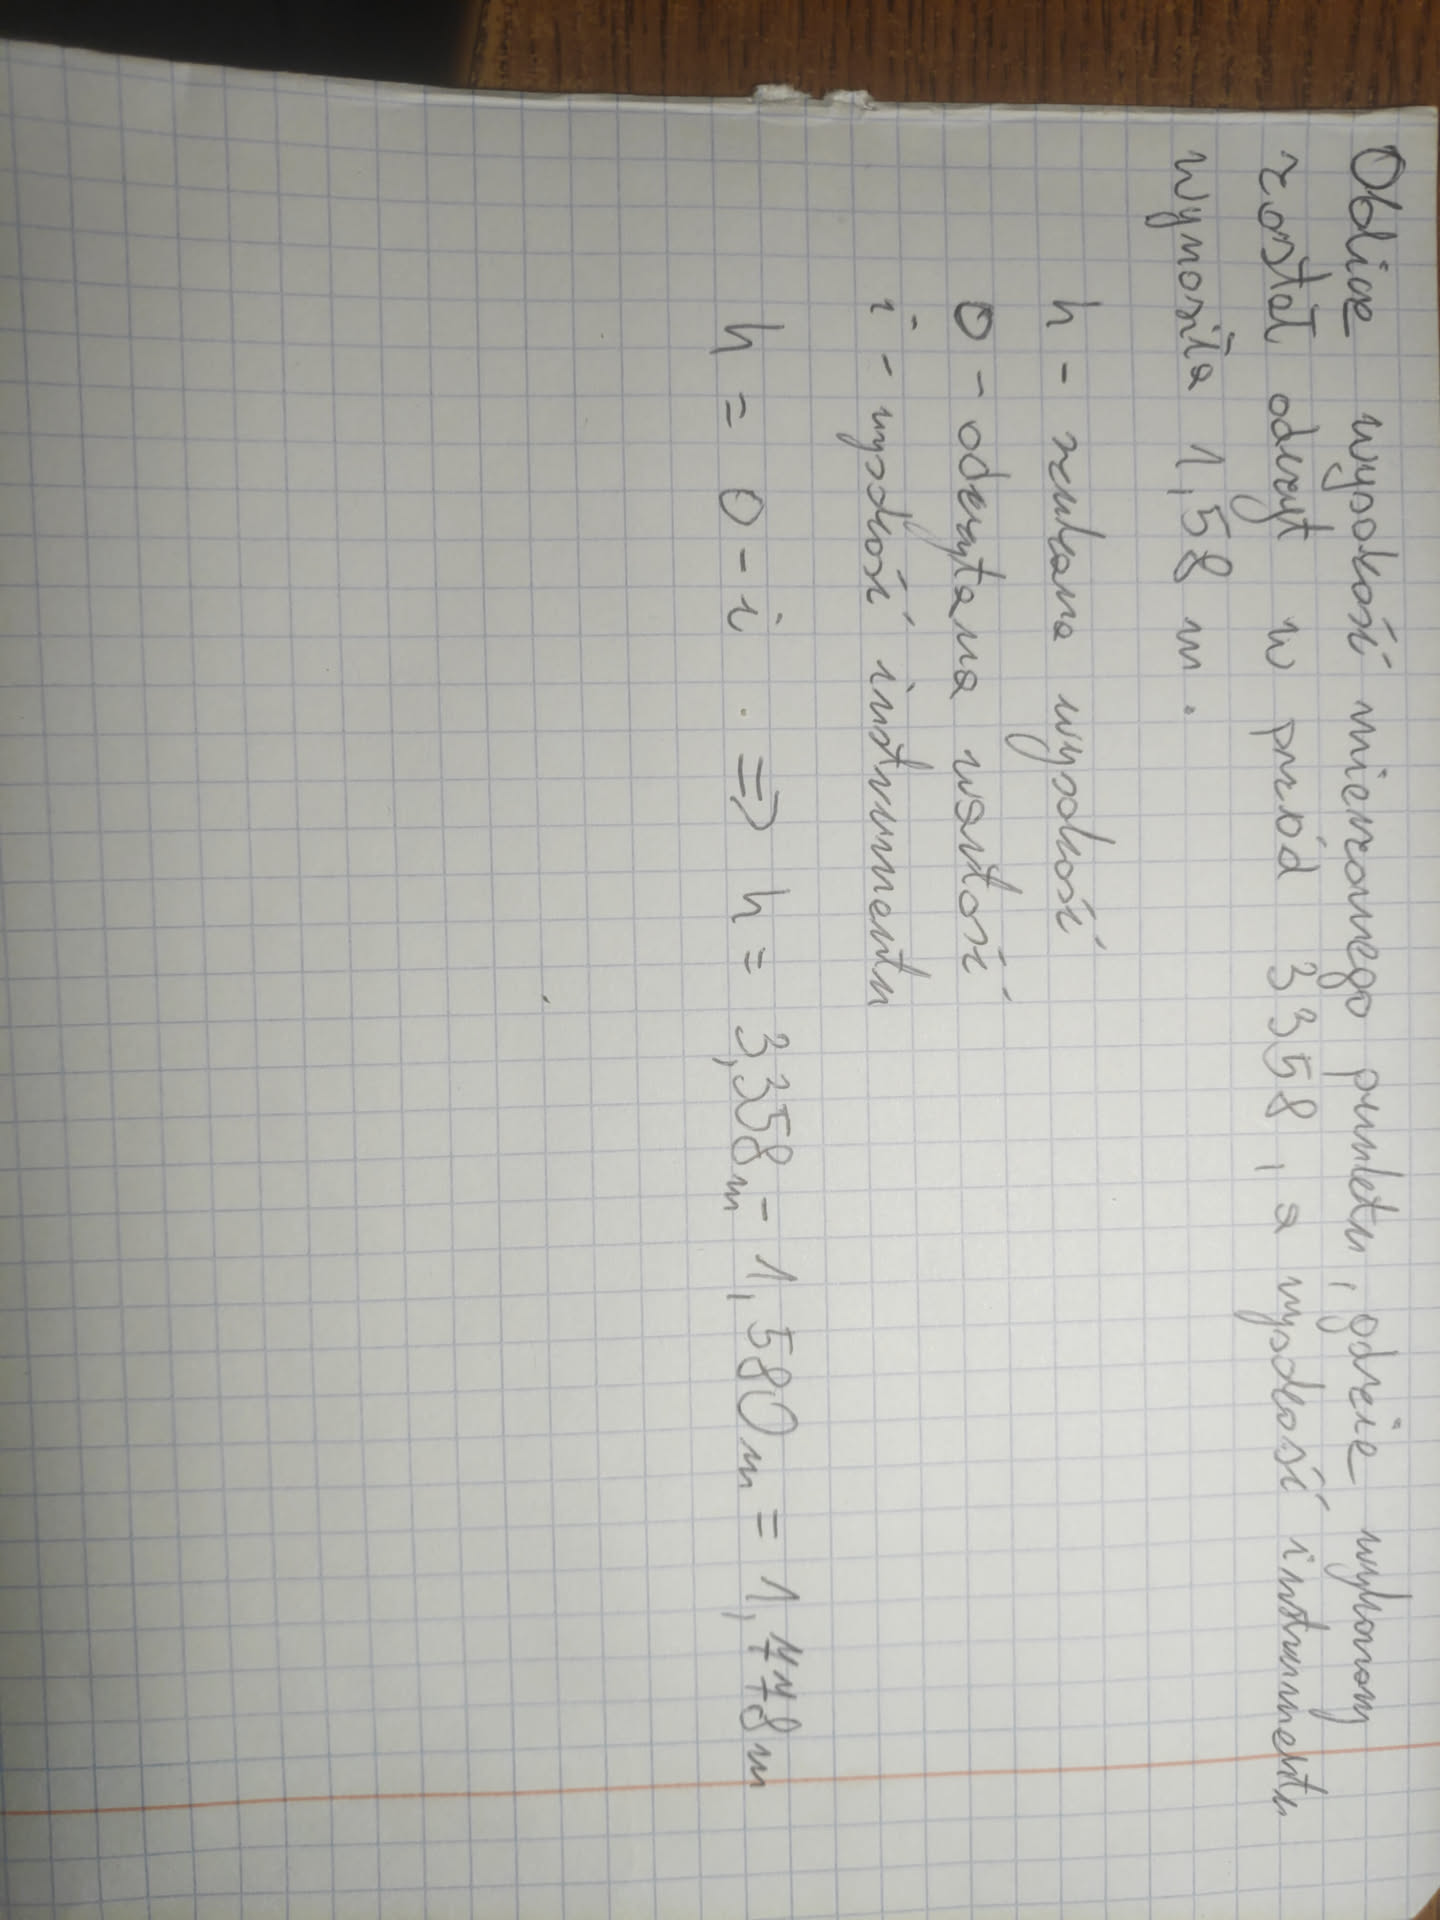 Oblicz wysokość mierzonego punktu, gdzie wykonany
został odczyt w przód 3358, a wysokość instrumentu
wynosiła 1,58 m.
h - szukana wysokość
O - odczytana wartość
i - wysokość instrumentu
h = O - i ⇒ h = 3,358m - 1,580m = 1,778m